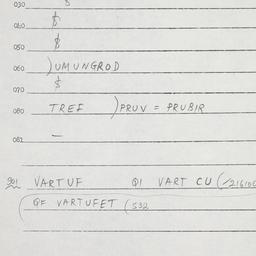 030 $
040 $
050 $
060 )UMUNGROD
070 $
080 TREF )PRUV = PRUBIR
082 —
901 VARTUF QI VART CU (
GF VARTUFET (532